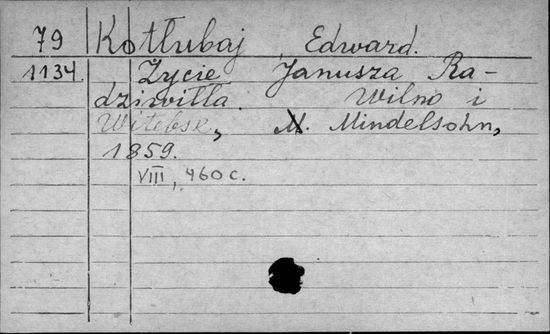 79 Kotłubaj Edward.
1134. Życie Janusza Ra-
dziwiłła. Wilno i
Witebsk, M. Mindelsohn,
1859.
VIII, 460 c.